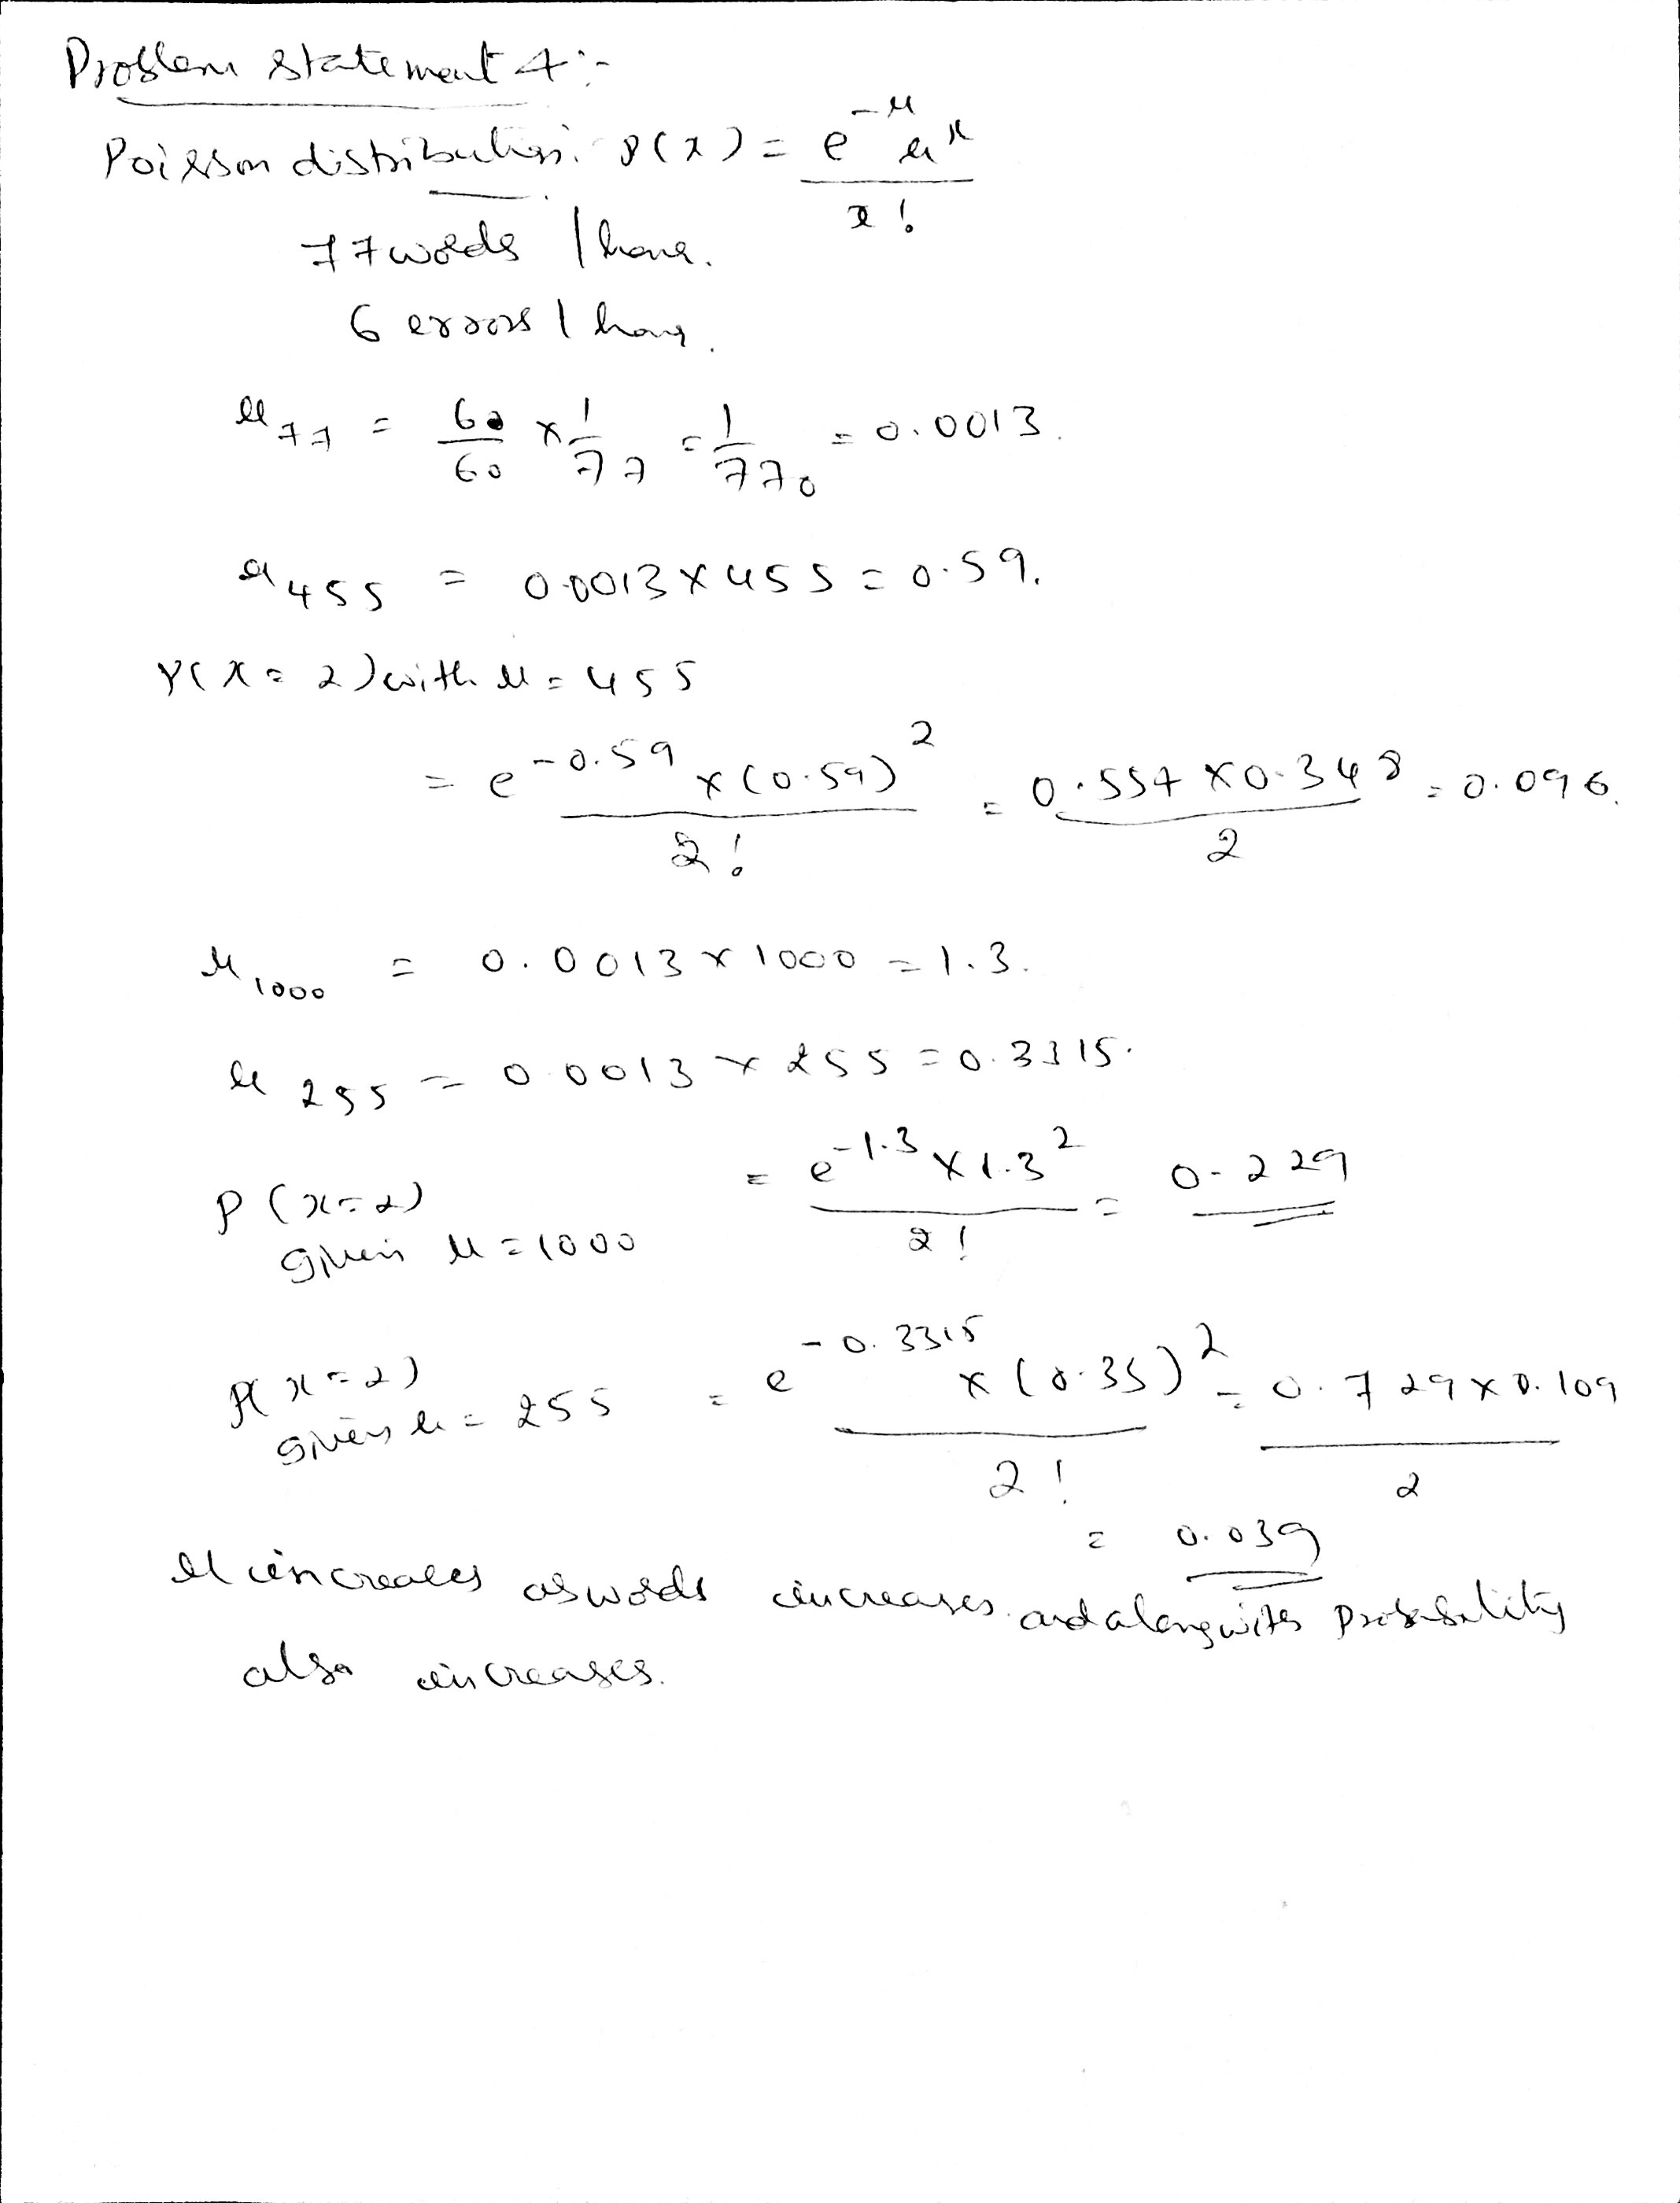 Problem statement 4 :-
Poisson distribution: P(x) = e^-μ μ^x / x!
77 words / hour.
6 errors / hour.
μ77 = 60/60 × 1/77 = 1/770 = 0.0013.
μ455 = 0.0013 × 455 = 0.59.
P(x = 2) with μ = 455
= e^-0.59 × (0.59)^2 / 2! = 0.557 × 0.348 / 2 = 0.096.
μ1000 = 0.0013 × 1000 = 1.3.
μ255 = 0.0013 × 255 = 0.3315.
P(x=2) given μ = 1000 = e^-1.3 × 1.3^2 / 2! = 0.229
P(x=2) given μ = 255 = e^-0.3315 × (0.35)^2 / 2! = 0.729 × 0.109 / 2
= 0.039
μ increases as words increases and along with probability
also increases.